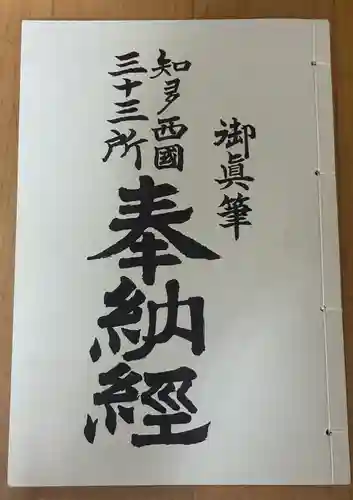 御眞筆
知多西國
三十三所
奉納經